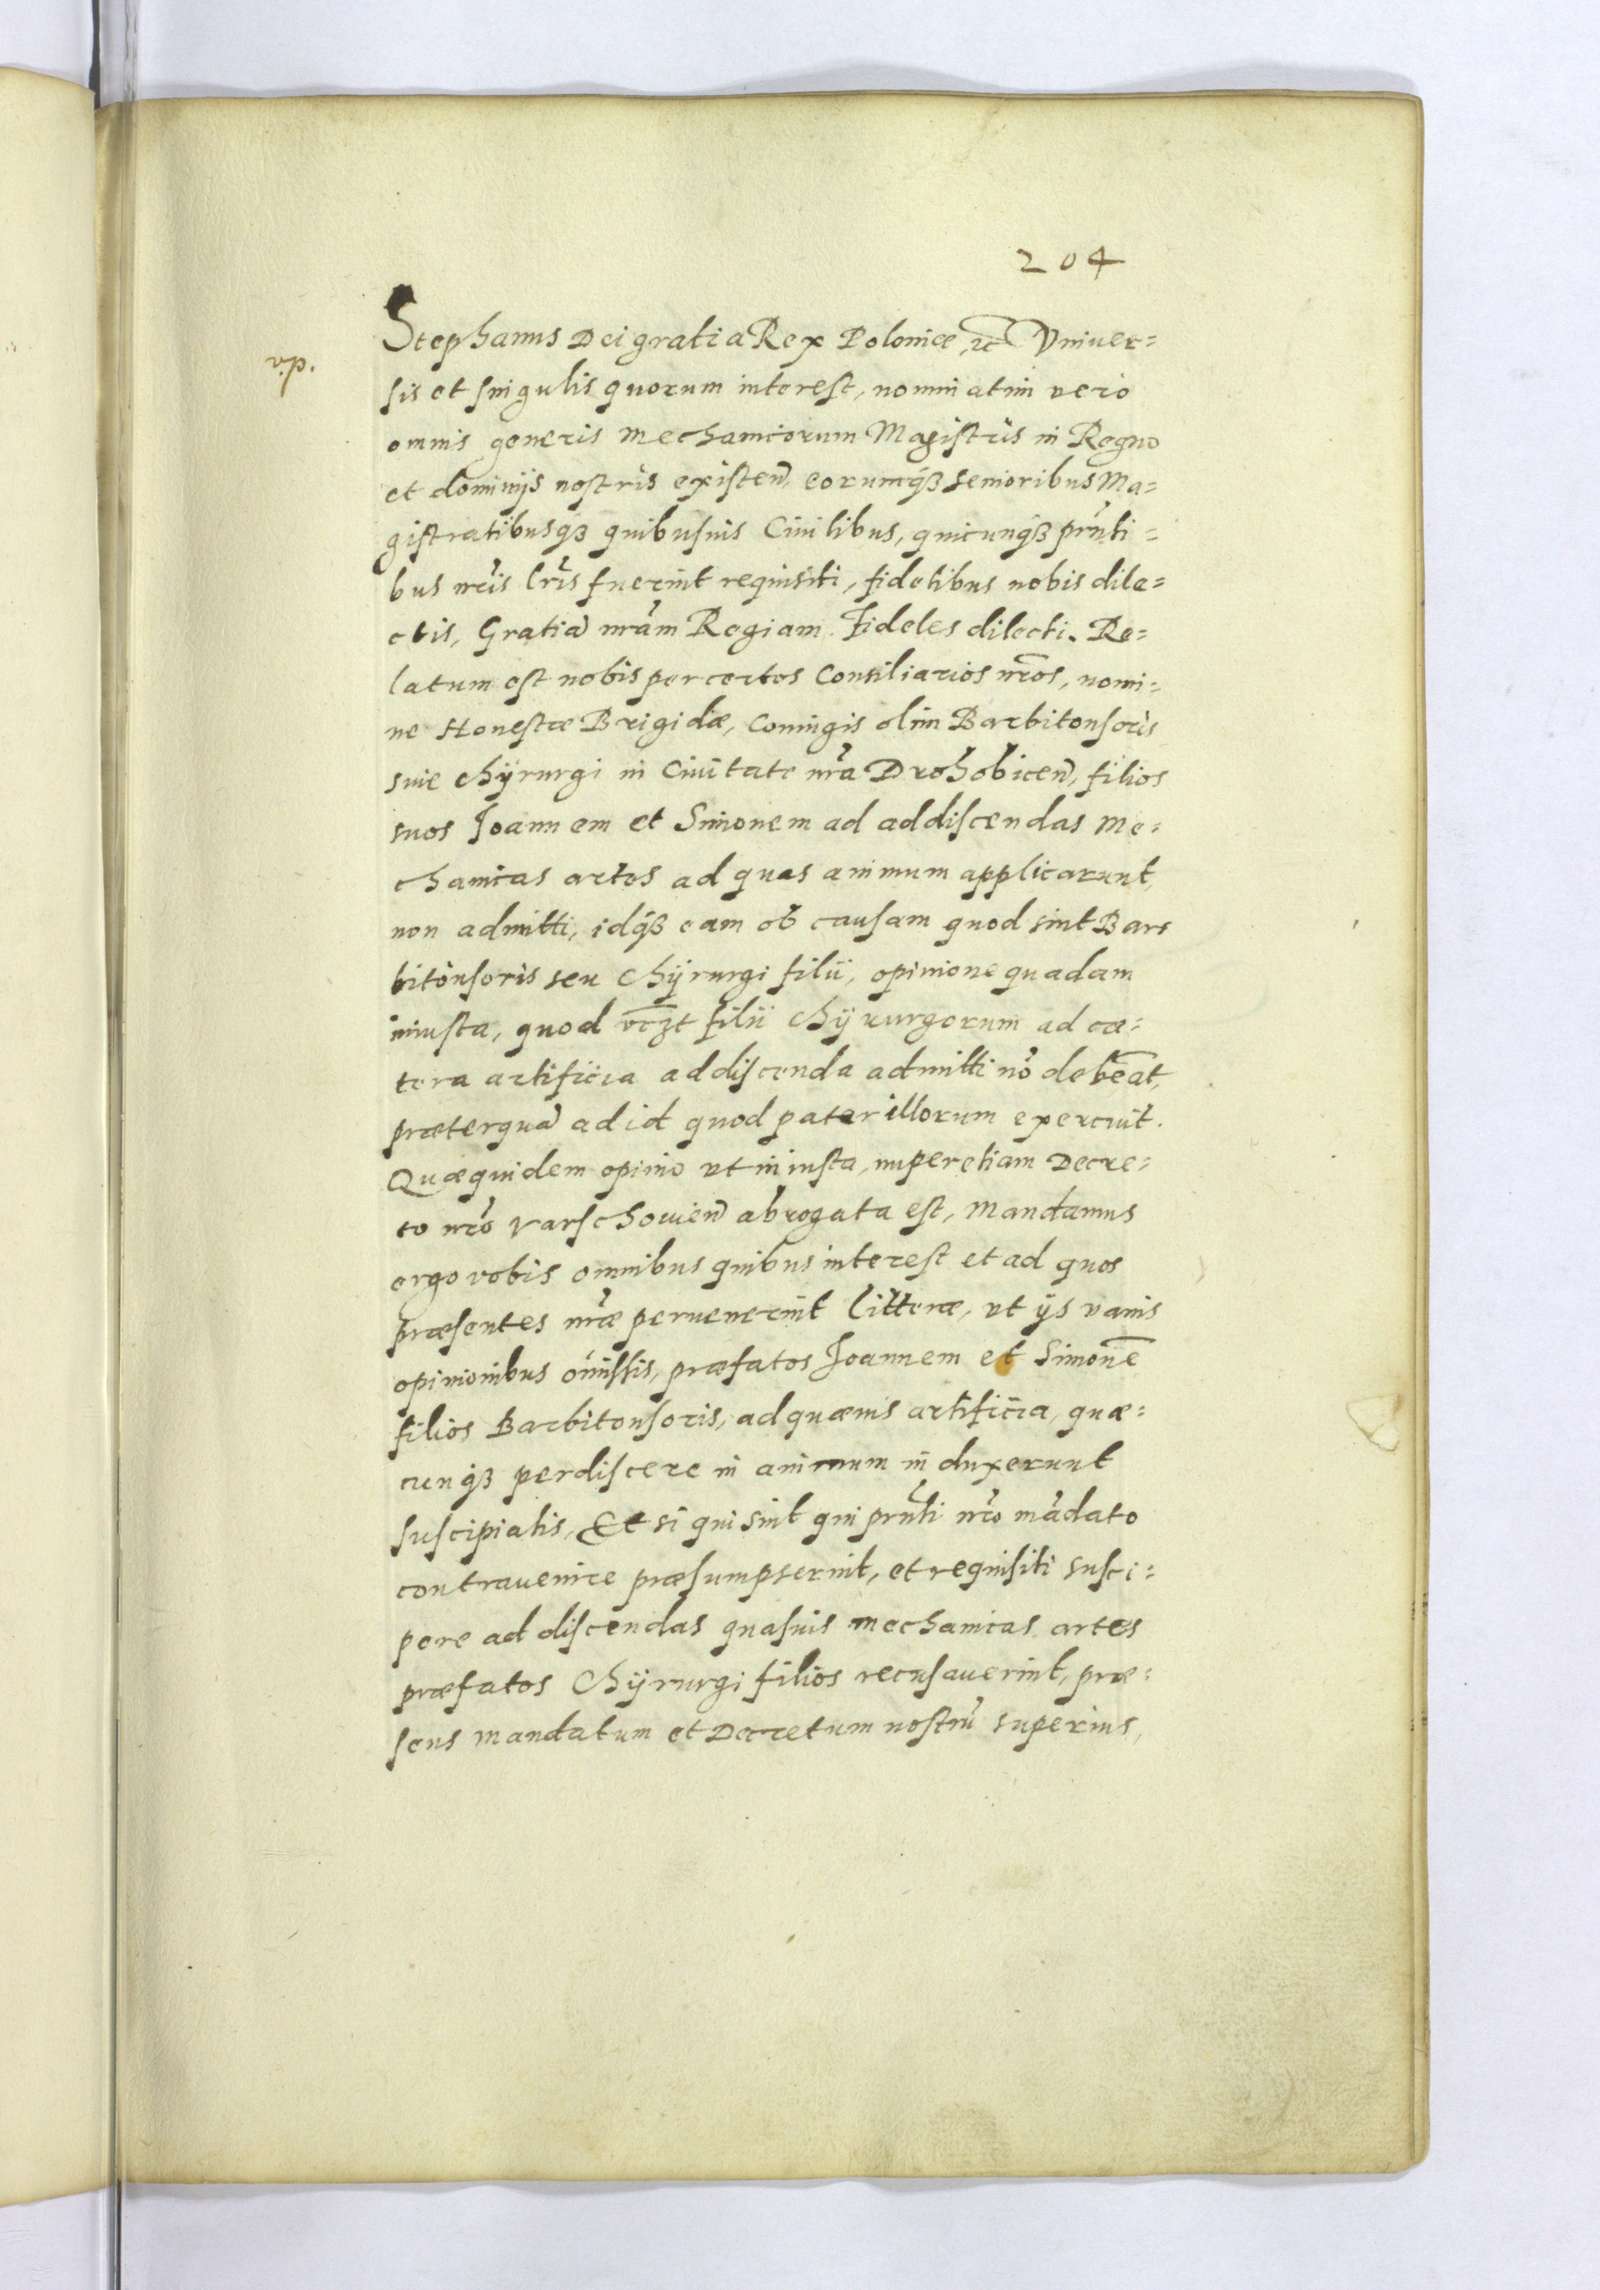 204
Stephanus Dei gratia Rex Poloniæ, ꝛc̃ Vniuer=
v.p.
sis et singulis quorum interest, nominatim vero
omnis generis mechanicorum Magistris in Regno
et dominijs nostris existen̄, eorumqꝫ senioribus Ma=
gistratibusqꝫ quibusuis Ciuilibus, quicunqꝫ pr̃nti=
bus nr̃is lr̃is fuerint requisiti, fidelibus nobis dile=
ctis, Gratiā nr̃am Regiam. Fideles dilecti. Re=
latum est nobis per certos Consiliarios nr̃os, nomi=
ne Honestæ Brigidæ, Coniugis olim Barbitonsoris
siue chÿrurgi in Ciuitate nr̃a Drohobicen̄, filios
suos Joannem et Simonem ad addiscendas me=
chanicas artes ad quas animum applicarunt,
non admitti, idqꝫ eam ob causam quod sint Bar=
bitonsoris seu chÿrurgi filii, opinione quadam
iniusta, quod vcꝫt filii chÿrurgorum ad cæ=
tera artificia addiscenda admitti nō debeāt,
præterquā ad id quod pater illorum exercuit.
Quæquidem opinio vt iniusta, nuper etiam Decre=
to nr̃o Varschouien̄ abrogata est, Mandamus
ergo vobis omnibus quibus interest et ad quos
præsentes nr̃æ peruenerint litteræ, vt ijs vanis
opinionibus om̄issis, præfatos Joannem et Simonē
filios Barbitonsoris, ad quæuis artificia, quæ=
cunqꝫ perdiscere in animum induxerunt
suscipiatis, Et si qui sint qui pr̃nti nr̃o mādato
contrauenire præsumpserint, et requisiti susci=
pere ad discendas quasuis mechanicas artes
præfatos Chÿrurgi filios recusauerint, præ=
sens mandatum et Decretum nostrū superius,